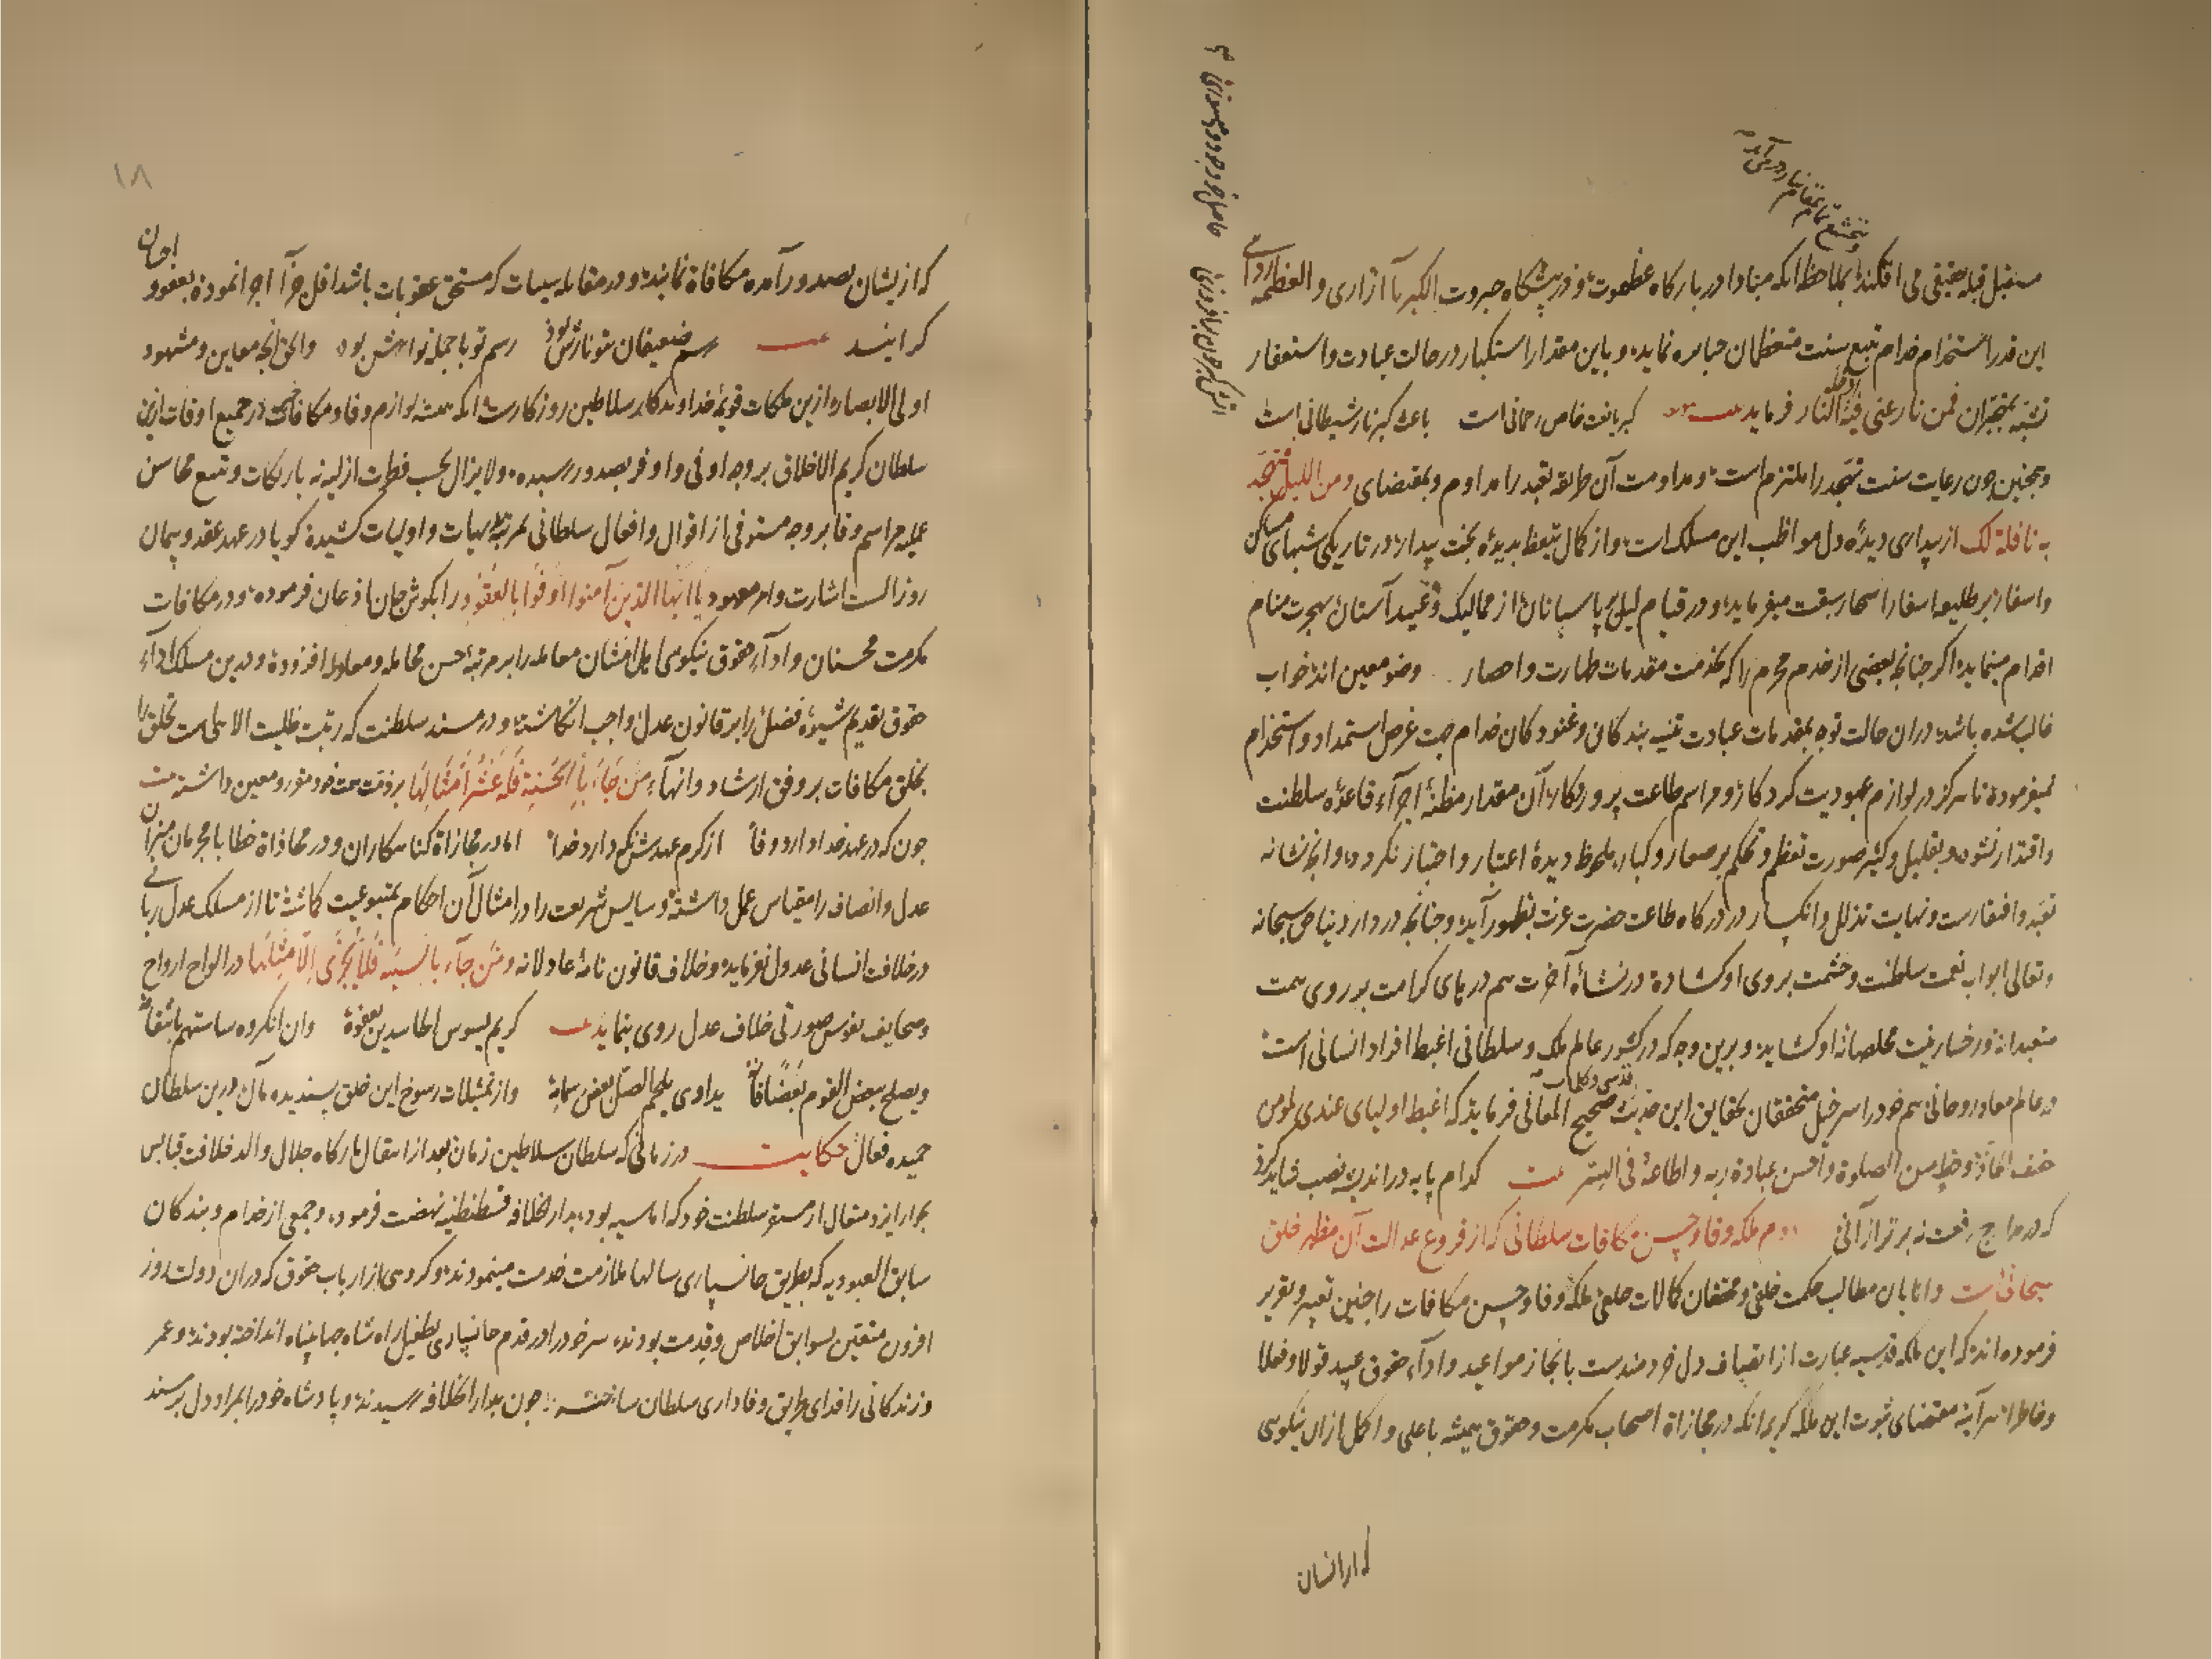 و تخشع تمام بمقام نیاز در می آید
مستقبل قبله حقیقی می افکند بملاحظه انکه مبادا در بارکاه عظموت و در پیشکاه جبروت الکبریآ ازاری و العظمة ردائی
این قدر استخدام خدام تتبع سنت متعظمان جبابره نماید و باین مقدار استکبار در حالت عبادت و استغفار
تشبه بمتجبران فمن نازعنی فیه ادخلته النار فرماید کبریا نعت خاص رحمانی است باعث کبر نار شیطانی است
و همچنین چون رعایت سنت تهجد را ملتزم است و مداومت آن طریقه تعبد را مداوم و بمقتضای و من اللیل فتهجد
به نافلة لک از بیداری دیده دل مواظب این مسلک است و از کمال تیقظ بدیده بخت بیدار در تاریکی شبهای
و اسفار بر طلیعه اسفار اسحار سبقت میفرماید و در قیام لیل بر پاسبانان از ممالیک و عبید آستان هجرت منام
اقدام مینماید اکر چنانچه بعضی از خدم محرم را که بخدمت مقدمات طهارت و احضار وضو معین اند خواب
غالب شده باشد در ان حالت توجه بمقدمات عبادت تنبیه بندکان و غنودکان خدام جهت غرض استمداد و استخدام
نمیفرموده تا هرکز در لوازم عبودیت کردکار و مراسم طاعت پروردکار آن مقدار مظنه اجرآء قاعده سلطنت
و اقتدار نشود و بتقلیل و کثیر صورت تعظم و تحکم بر صغار و کبار ملحوظ دیده اعتبار و اختیار نکردد و انچه نشانه
تعبد و افتقارست و نهایت تذلل و انکسار در درکاه طاعت حضرت عزت بظهور آید و چنانچه در دار دنیا حق سبحانه
و تعالی ابواب نعمت سلطنت و حشمت بروی او کشاده در نشأه آخرت هم درهای کرامت بر روی همت
متعبدانه و رخسار نیت مخلصانه او کشاید و برین وجه که در کشور عالم ملک و سلطانی اغبط افراد انسانی است
در عالم معاد روحانی هم خود را سرخیل متحققان بحقایق این حدیث قدسی صحیح المعانی فرماید که اغبط اولیای عندی لمومن
خفیف الحاذ ذو حظ من الصلوة و احسن عبادة ربه و اطاعه فی السر کدام پایه در اندیشه نصب شاید کرد
که در مدارج رفعت نه برتر از آنی دوم ملکه وفا و حسن مکافات سلطانی که از فروع عدالت آن مظهر خلق
سبحانی است دانایان مطالب حکمت خلقی و محققان کمالات ملکه وفا و حسن مکافات را چنین تعبیر و تقریر
فرموده اند که این ملکه قدسیه عبارت از اتصاف دل خردمندست بانجاز مواعید و ادآء حقوق عبید قولا و فعلا
و خاطرا هر آینه مقتضای ثبوت این ملکه کریم انکه در مجازاة اصحاب مکرمت و حقوق همیشه باعلی و اکمل ازان نیکویی
۱۸
که ازیشان بصدور آمده مکافاة نمایند و در مقابله سیئات که مستحق عقوبات باشد اقل جزآ اجرا نموده بعفو و احسان
کرایند رسم ضعیفان بتو نازش بود رسم تو با جمله نوازش بود و الحق انچه معاین و مشهود
اولی الابصار ازین ملکات قویمه خداوندکار سلاطین روزکارست انکه همیشه لوازم وفا و مکافات در جمیع اوقات ازین
سلطان کریم الاخلاق بر وجه اوفی و اوفر بصدور رسیده و لا یزال بحسب فطرت ازلیه نه بارتکات و تتبع محاسن
عملیه مراسم وفا بر وجه مستوفی از اقوال و افعال سلطانی بمرتبه بدیهیات و اولیات کشیده کویا در عهد عقد و پیمان
روز الست اشارت و امر معهود یا ایها الذین آمنوا اوفوا بالعقود را بکوش جان اذعان فرموده و در مکافات
مکرمت محسنان و ادآء حقوق نیکویی اهل امتنان معامله را بر مرتبه حسن مجامله و معادله افزوده و درین مسلک ادآء
حقوق تقدیم شیوه فضل را بر قانون عدل واجب انکاشته و در مسند سلطنت که رتبت ظلیت الاهی است تخلق را
بخلق مکافات بر وفق ارشاد و انهآء من جآء بالحسنة فله عشر امثالها بر ذمت همت خود مقرر و معین داشته
چون که در عهد خدا دارد وفا از کرم عهدش نکه دارد خدا اما در مجازاة کناهکاران و در محاذاة خطا با مجرمان میزان
عدل و انصاف را مقیاس عمل داشته و سایس شریعت را در امثال آن احکام بمتبوعیت کماشته تا از مسلک عدل ربانی
در خلافت انسانی عدول نفرماید و خلاف قانون نامه عادلانه و من جآء بالسیئة فلا یجزی الا مثلها در الواح ارواح
و صحایف نفوس صورتی خلاف عدل روی ننماید کریم یسوس الحاسدین بعفوه وان انکروه ساستهم
و یصلح بعض القوم بعضا یداوی بلحم الصل بعض سمامه و از تمثیلات رسوخ این خلق پسندیده مآل درین سلطان
حمیده فعال حکایت در زمانی که سلطان سلاطین زمان بعد از انتقال بارکاه جلال والد خلافت
بجوار ایزد متعال از مستقر سلطنت خود که اماسیه بود بدار الخلافه قسطنطنیه نهضت فرمود و جمعی از خدام و بندکان
سابق العبودیه که بطریق جانسپاری سالها ملازمت خدمت مینمودند و کروهی از ارباب حقوق که دران دولت روز
افزون متعین بسوابق اخلاص و قدمت بودند سر خود را در قدم جانسپاری بطفیل راه شاه جهان پناه انداخته بودند و عمر
و زندکانی را فدای طریق وفاداری سلطان ساخته چون بدار الخلافه رسیدند و پادشاه خود را بمراد دل بر مسند